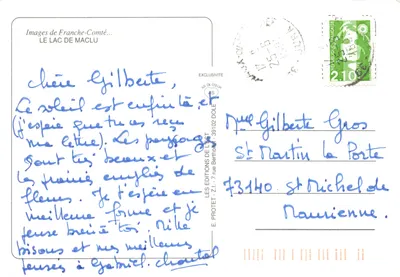 Images de Franche-Comté...
LE LAC DE MACLU
Chère Gilberte,
Le soleil est enfin là, et
(j'espère que tu as reçu
ma lettre). Les paysages
sont très beaux et
les prairies emplies de
fleurs. Je t'espère en
meilleure forme et je
pense bien à toi. Mille
bisous et mes meilleures
pensées à Gabriel. Chantal
EXCLUSIVITÉ
LES EDITIONS DE L'EST
E. PROTET - Z.I. - 7 rue 39102 DOLE
2,10
Mme Gilberte Gros
St Martin la Porte
73140 St Michel de
Maurienne.